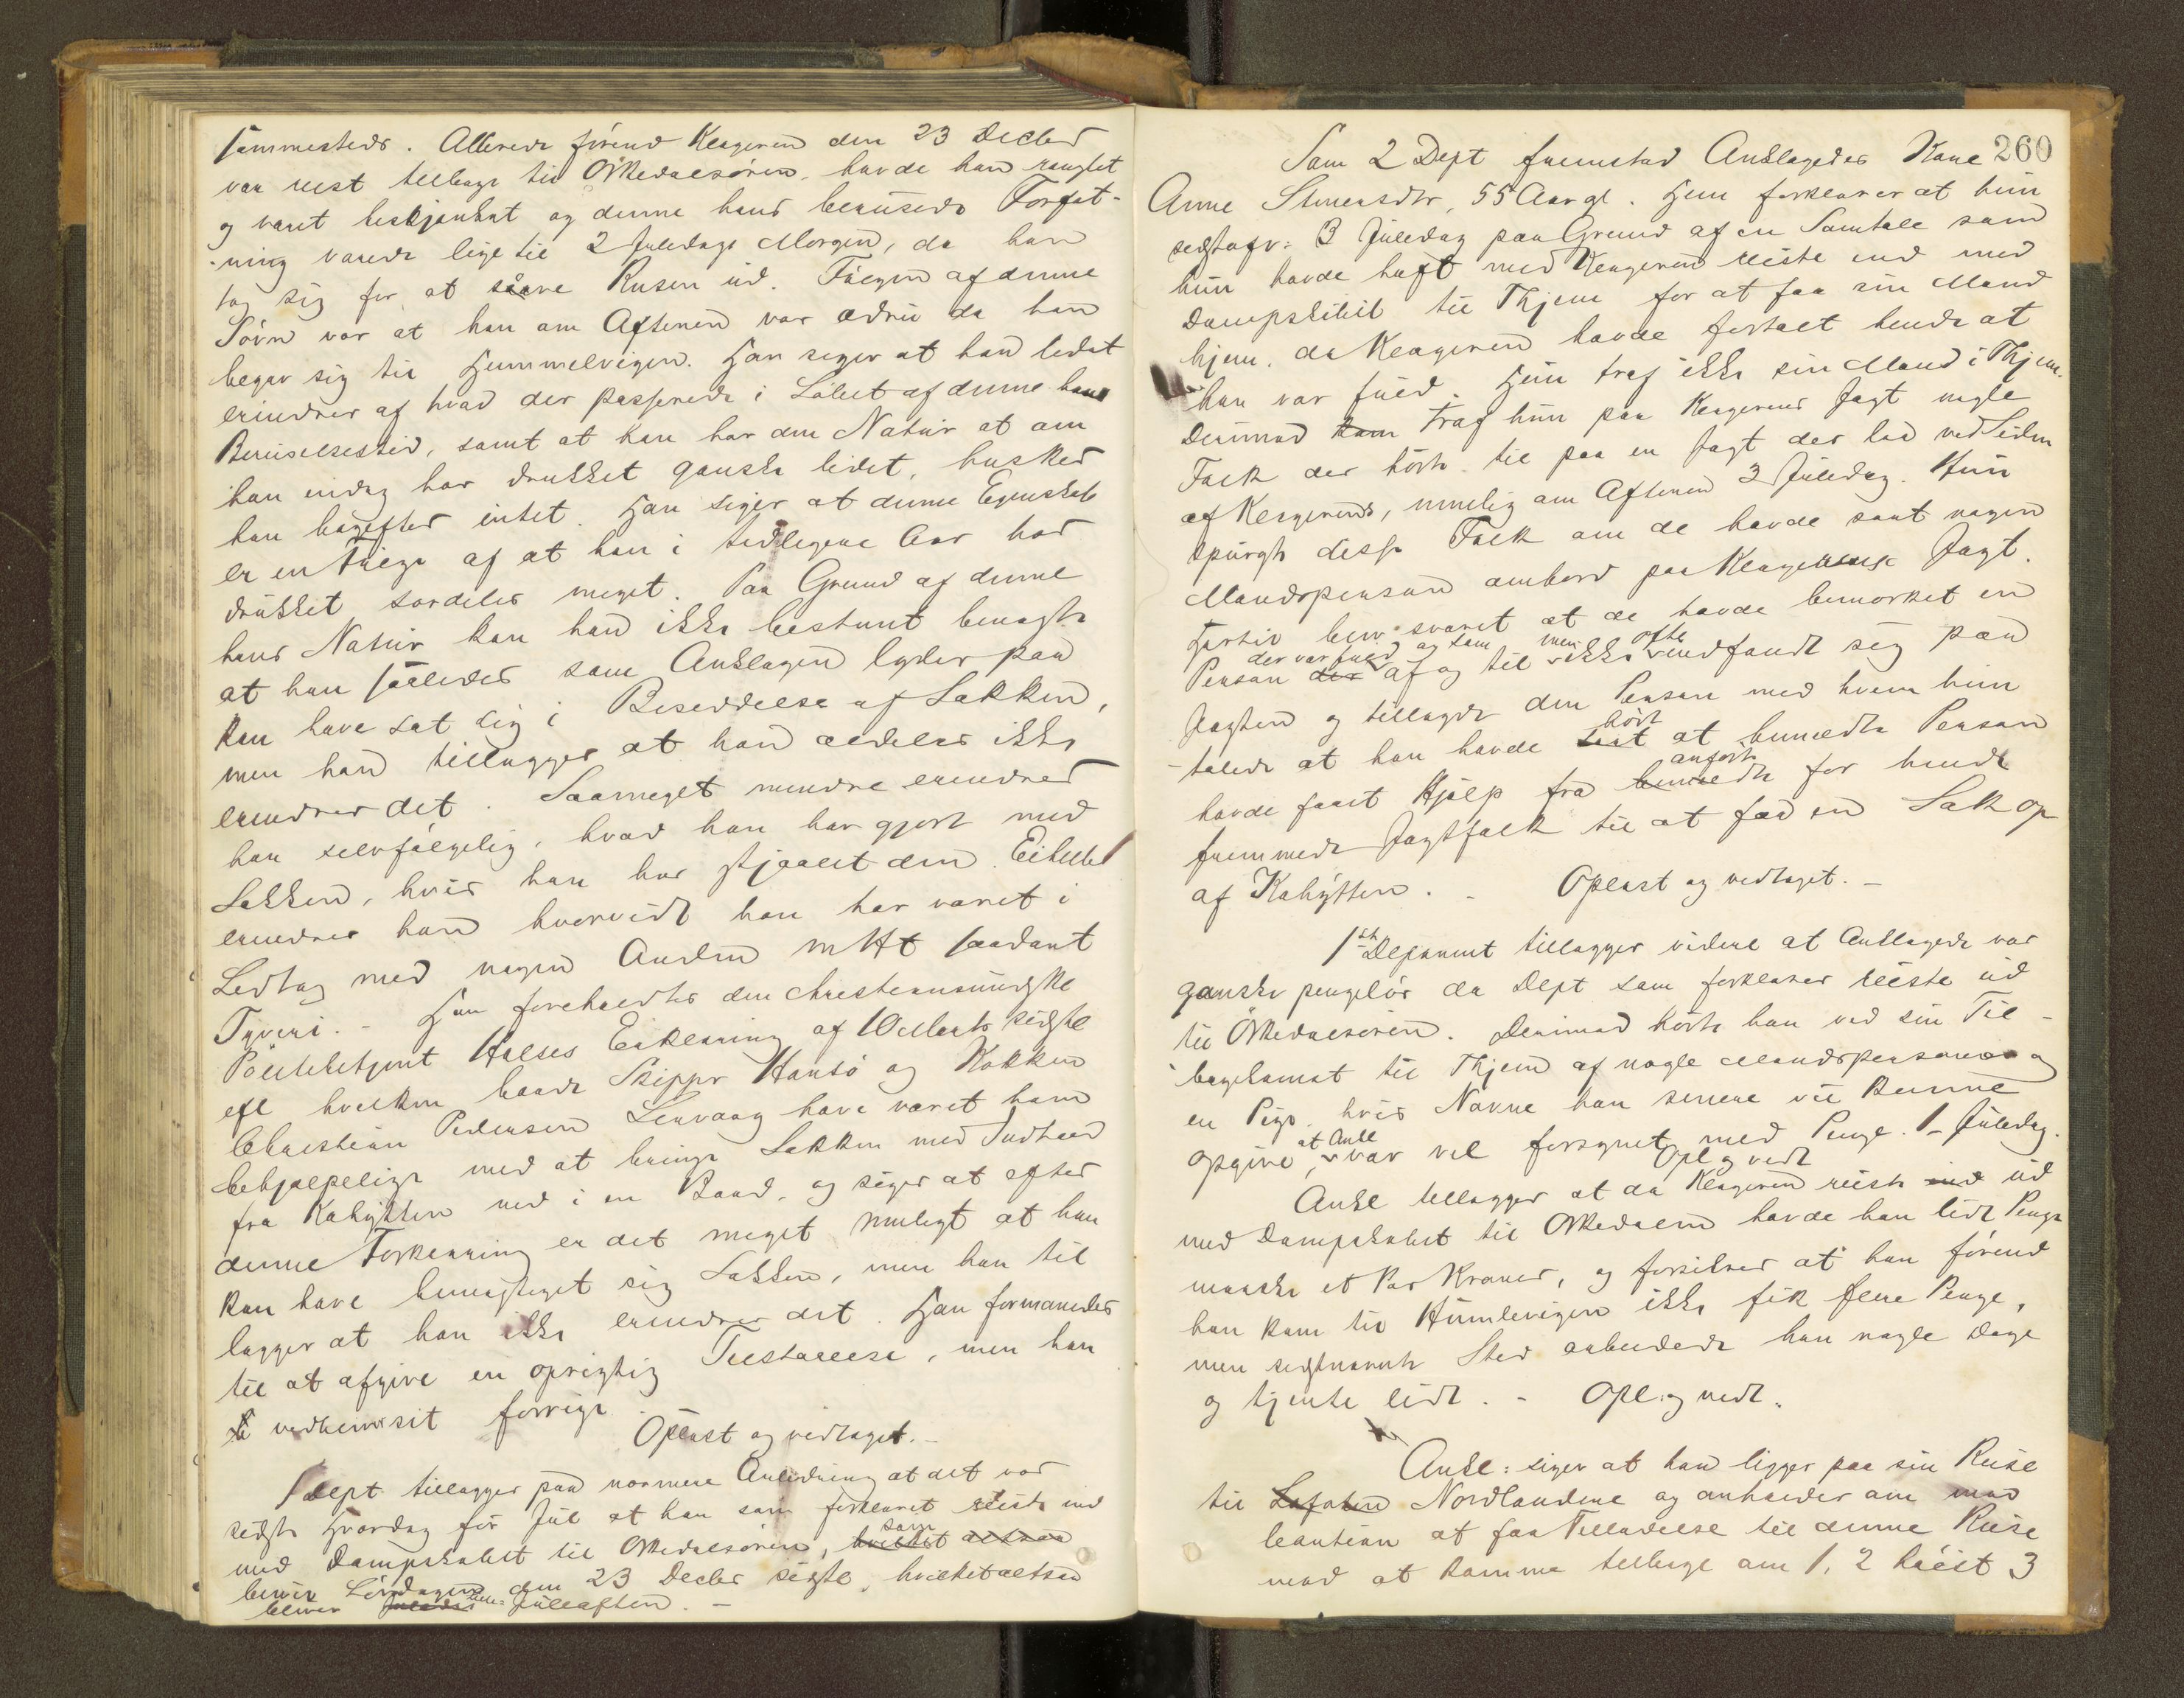 sammesteds. Allerede förend Klageren den 23 Decber
var reist tilbage til Örkedalsören, havde han ranglet
og været beskjænket og denne hans berusede Forfat-
ning varede lige til 2 Juledags Morgen, da han
tog sig for at såve Rusen ud. Fölgen af denne
Sövn var at han om Aftenen var ædru da han
begav sig til Hummelvigen. Han siger at han lidet
erindrer af hvad der passerede i Löbet af denne hans
Beruselsestid, samt at han har den Natur at om
han endog har drukket ganske lidet, husker
han bagefter intet. Han siger at denne Egenskab
er en Fölge af at han i tidligere Aar har
drukket særdeles meget. Paa Grund af denne
hans Natur kan han ikke bestemt benægte
at han saaledes som Anklagen lyder paa
kan have sat sig i Besiddelse af Sækken,
men han tillægger at han aldeles ikke
erindrer det. Saameget mindre erindrer
han selvfölgelig, hvad han har gjort med
Sækken, hvis han har stjaalet den. Ei heller
erindrer han hvorvidt han har været i
Ledtog med nogen Anden mHt saadant
Tyveri. - Han foreholdtes den christianssundske
Politibetjent Halses Erklæring af 10 Marts sidstl
efl hvilken baade Skipper Hansö og Kokken
Christian Pedersen Lervaag have været ham
behjælpelige med at bringe Sækken med Indhold
fra Kahytten ned i en Baad, og siger at efter
denne Forklaring er det meget muligt at han
kan have bemægtiget sig Sækken, men han til
lægger at han ikke erindrer det. Han formanedes
til at afgive en oprigtig Tilstaaelse, men han
vedblev sit forrige.
Oplæst og vedtaget. -
1 Dept tillægger paa nærmere Anledning at det var
sidste Hverdag för Jul at han som forklaret reiste ind
med Dampskibet til Örkedalsören, hvilket altsaa som
bliver Lördagen den 23 Decbr sidstl, hvilket altsaa
bliver Juleaften. -
260
Som 2 Dept fremstod Anklagedes Kone
Anne Simensdtr, 55 Aar gl. Hun forklarer at hun
sidstafv: 3 Juledag paa Grund af en Samtale som
hun havde havt med Klageren reiste ind med
Dampskibet til Thjem for at faa sin Mand
hjem, da Klageren havde fortalt hende at
han var fuld. Hun traf ikke sin Mand i Thjem.
Derimod kom traf hun paa Klagerens Jagt nogle
Folk der hörte til paa en Jagt der laa ved Siden
af Klagerens, nemlig om Aftenen 3 Juledag. Hun
spurgte disse Folk om de havde seet nogen
Mandsperson ombord paa Klagerens Jagt.
Hertil blev svaret at de havde bemærket en
Person der der var fuld og som af og til men ikke ofte indfandt sig paa
Jagten og tillagde den Person med hvem hun
talede at han havde seet hört at bemeldte Person
havde faaet Hjælp fra bemeldte anförte for hende
fremmede Jagtfolk til at faa en Sæk op
af Kahytten. - Oplæst og vedtaget. -
1ste Deponent tillægger videre at Anklagede var
ganske pengelös da Dept som forklarer reiste ud
til Örkedalsören. Derimod hörte han ved sin Til-
bagekomst til Thjem af nogle Mandspersoner og
en Pige, hvis Navne han senere vil kunne
opgive, at Ankl var vel forsynet med Penge 1 Juledag.
Opl og vedt
Ankl tillægger at da Klageren reiste ind ud
med Dampskibet til Örkedalen havde han lidt Penge
maaske et Par Kroner, og forsikrer at han förend
han kom til Humlevigen ikke fik flere Penge,
men sidstnævnte Sted arbeidede han nogle Dage
og tjente lidt. - Opl: og vedt.
Ankl: siger at han ligger paa sin Reise
til Lofoten Nordlandene og anholder om mod
Caution at faa Tilladelse til denne Reise
mod at komme tilbage om 1, 2 höist 3